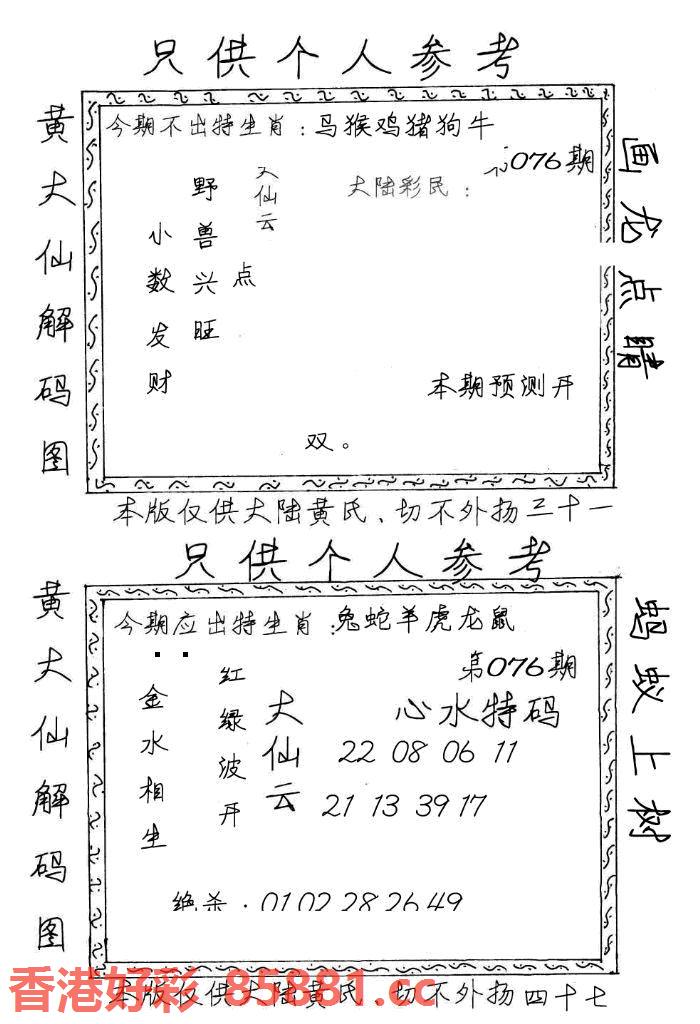 只供个人参考
黄大仙解码图
今期不出特生肖：马猴鸡猪狗牛
076期
大仙云
大陆彩民：
野兽兴旺
小数发财
点
本期预测开
双。
画龙点睛
本版仅供大陆黄氏、切不外扬三十一
只供个人参考
黄大仙解码图
今期应出特生肖：兔蛇羊虎龙鼠
第076期
金水相生
红绿波开
大仙云
心水特码
22 08 06 11
21 13 39 17
绝杀：01 02 28 26 49
蚂蚁上树
本版仅供大陆黄氏、切不外扬四十七
香港好彩 85881.cc